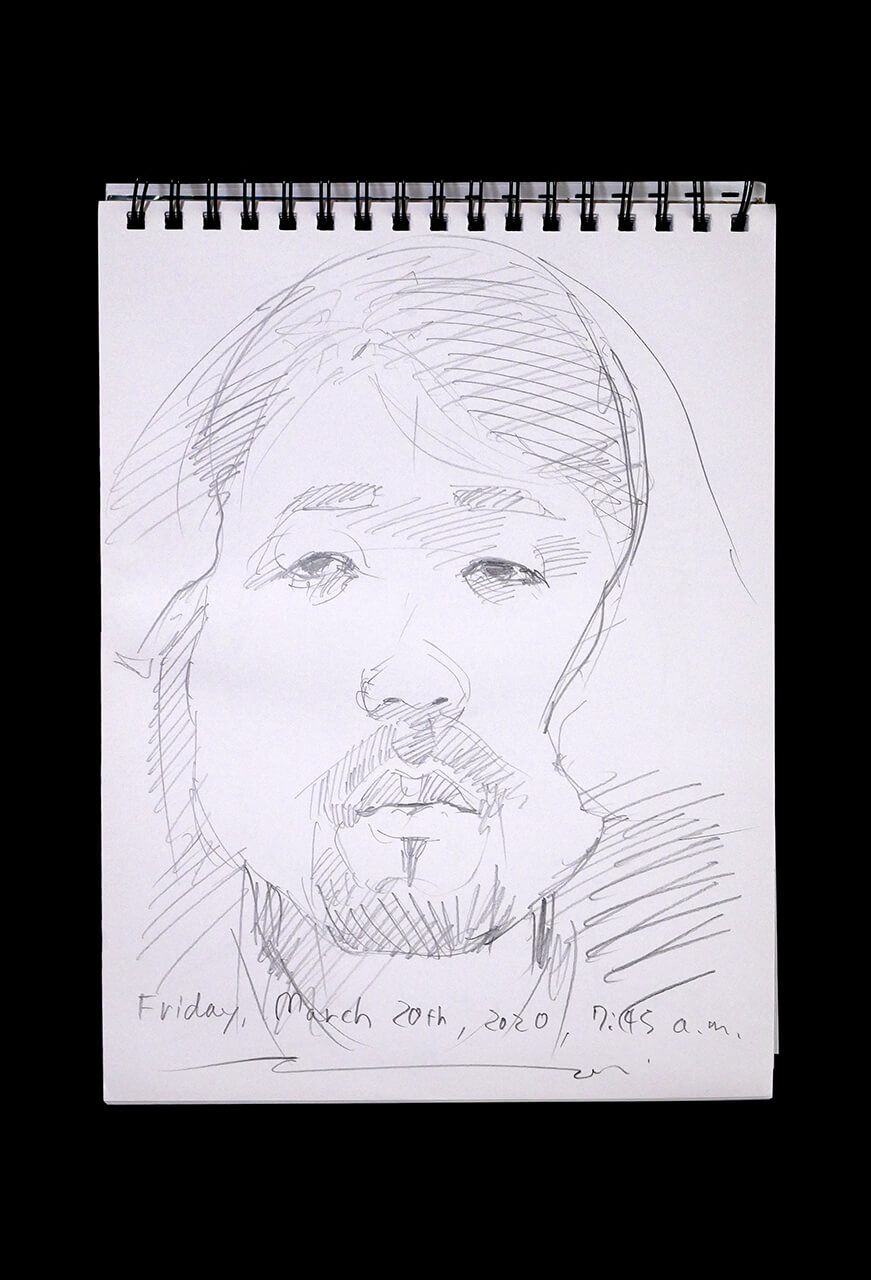 Friday, March 20th, 2020, 7:45 a.m.